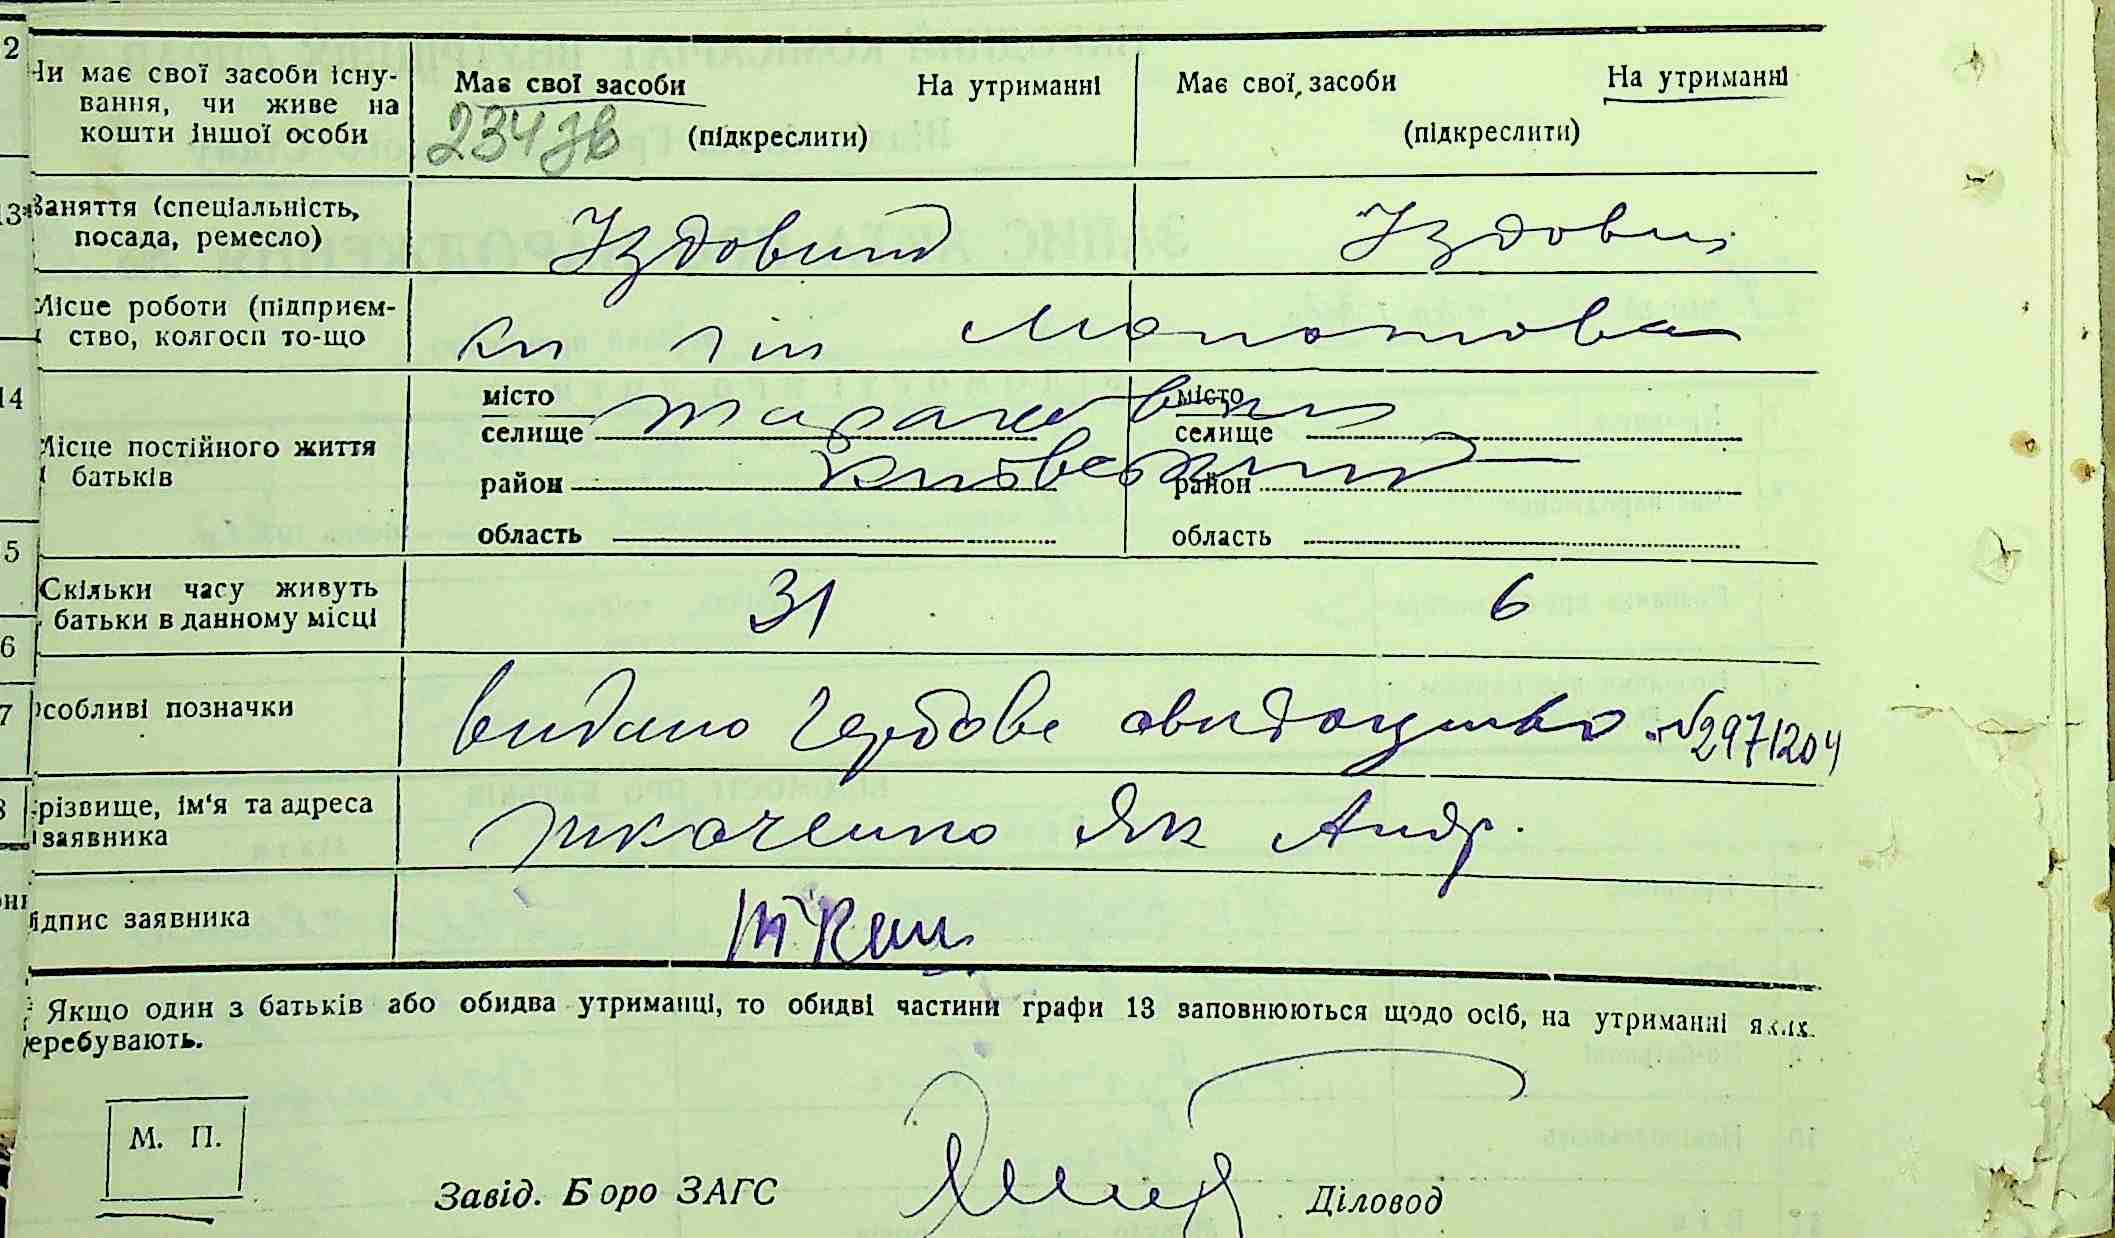 2 Чи має свої засоби існу- Має свої засоби На утриманні Має свої засоби На утриманні
вання, чи живе на
кошти іншої особи 234 зв (підкреслити) (підкреслити)
13 Заняття (спеціальність,
посада, ремесло) Їздовий Їздовий
Місце роботи (підприєм-
ство, колгосп то-що Молотова
14 місто місто
селище селище
Місце постійного життя
батьків район район
область область
5 Скільки часу живуть
батьки в данному місці 31 6
6
7 Особливі позначки видано гербове свидоцтво № 2971204
8 Прізвище, ім'я та адреса
заявника Ткаченко Як Андр.
Підпис заявника
Якщо один з батьків або обидва утриманці, то обидві частини графи 13 заповнюються щодо осіб, на утриманні яких
перебувають.
М. П.
Завід. Бюро ЗАГС Діловод